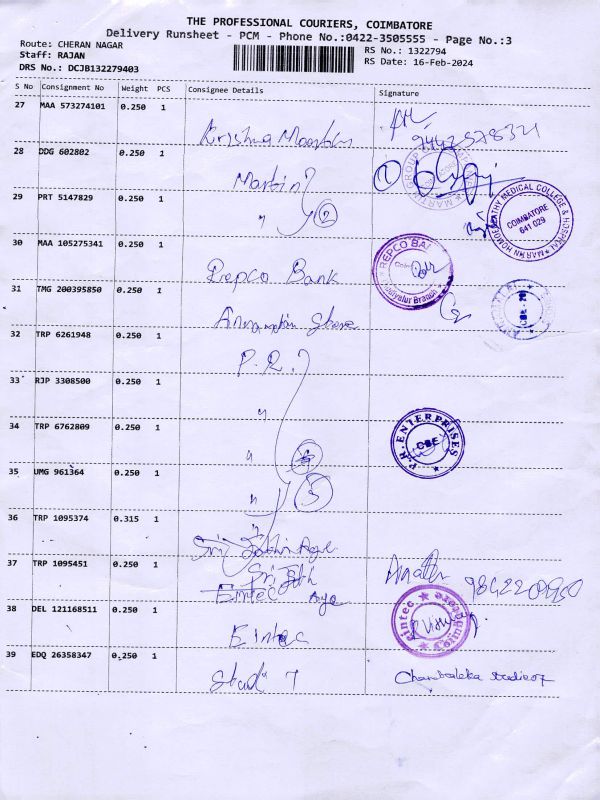 THE PROFESSIONAL COURIERS, COIMBATORE
Delivery Runsheet - PCM - Phone No.:0422-3505555 - Page No.:3
Route: CHERAN NAGAR
RS No.: 1322794
Staff: RAJAN
RS Date: 16-Feb-2024
DRS No.: DCJB132279403
S No Consignment No Weight PCS Consignee Details Signature
27 MAA 573274101 0.250 1
Krishna Moorthy
28 DDG 602802 0.250 1
Martin 1
29 PRT 5147829 0.250 1
" 2
MARTIN HOMOEOPATHY MEDICAL COLLEGE & HOSPITAL
COIMBATORE
641 029
30 MAA 105275341 0.250 1
Repco Bank
REPCO BANK
31 TMG 200395850 0.250 1
Store
32 TRP 6261948 0.250 1
P.R.
33 RJP 3308500 0.250 1
"
34 TRP 6762809 0.250 1
"
P.R.ENTERPRISES
CBE
35 UMG 961364 0.250 1
" 5
36 TRP 1095374 0.315 1
Sri
37 TRP 1095451 0.250 1
Eintec
9842209950
38 DEL 121168511 0.250 1
Eintec
eintec
39 EDQ 26358347 0.250 1
Studio 7